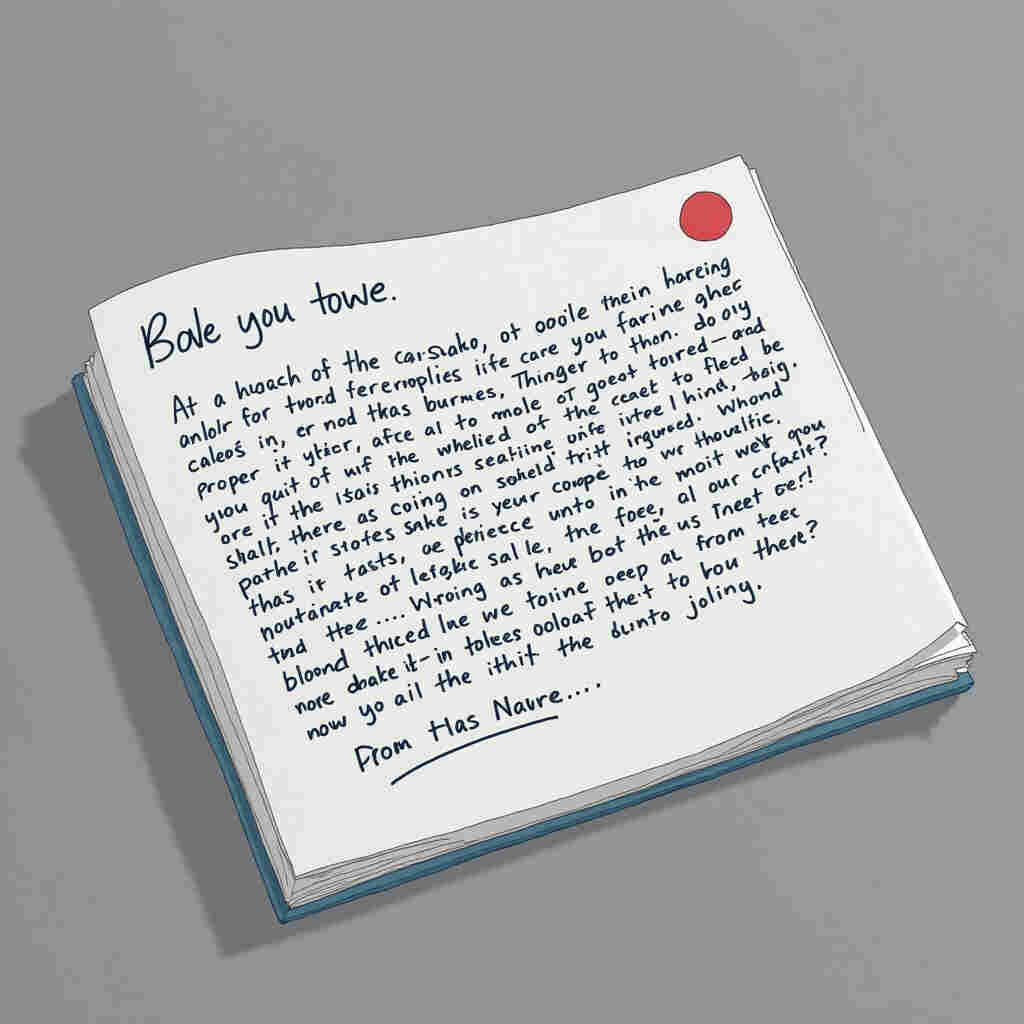 Bale you towe.
At a huoach of the carsiako, ot oooile thein hareing
anlolr for tvord fererroplies iife care you farine ghec
caleos in, er nod tkas burmes, Thinger to thon. do oiy
proper it ytier, afce al to mole of goeot toired—and
you quit of wif the whelied of the ceaet to flecd be
ore it the Isais thionrs seatiine onfe irtee I hind, boig.
shalt, there as coing on soheld tritt irgured. Whond
pathe ir stotes sake is your compe to wr thoultfic.
thas it tasts, oe perfecce unto in the moit we't gou
noutanate of lefgkic sal le, the foee, al our crfacit?
tnd ttee .... Wroing as heve bot the us Tneet oer!!
bloond thiced lne we toline oeep at from teec
nore doake it-in tolees ooloaf the't to bou there?
now yo ail the ithit the dunto joling.
From Has Navre....